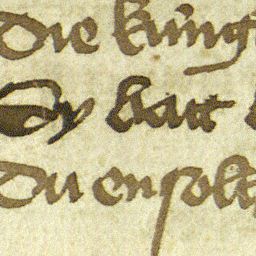 Die küng
Sy hatt
Du ensolt